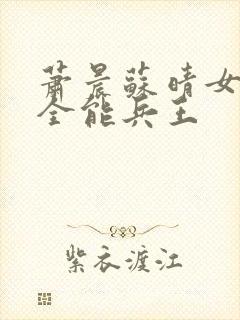 萧晨苏晴女
全能兵王
紫衣渡江